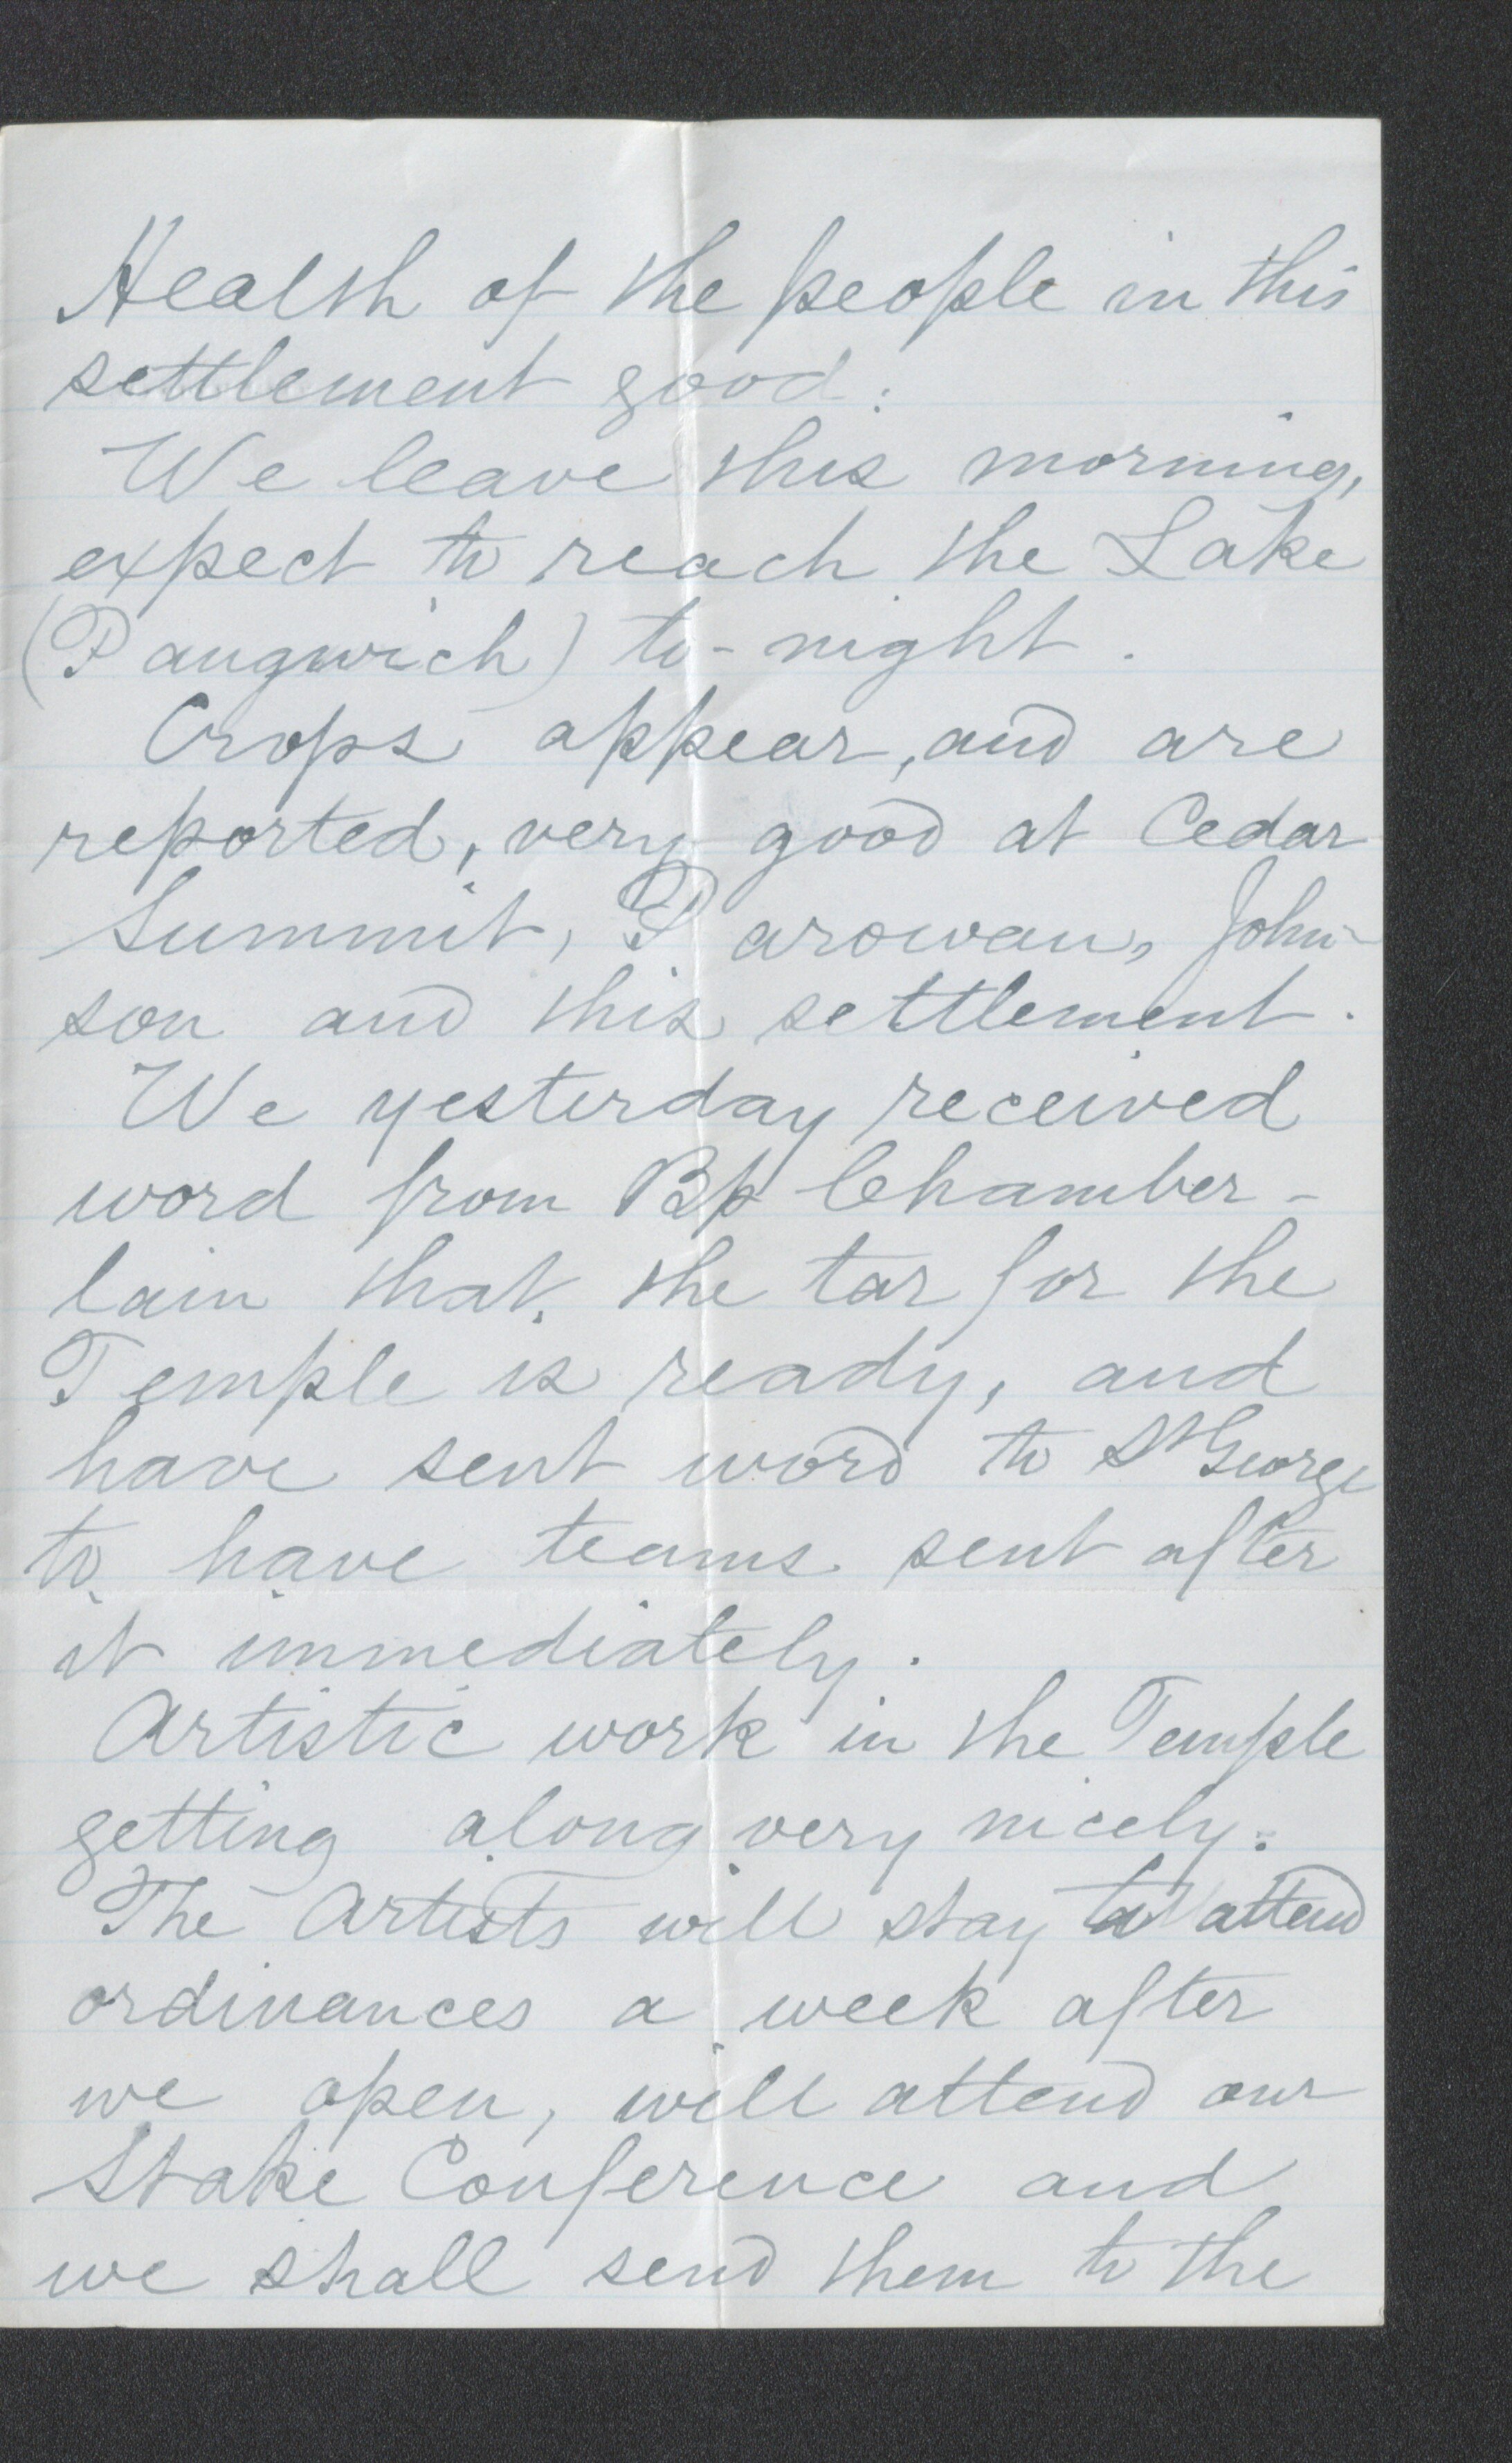 Health of the people in this
settlement good.
We leave this morning,
expect to reach the Lake
(Pangwich) to-night.
Crops appear, and are
reported, very good at Cedar
Summit, Parowan, John-
son and this settlement.
We yesterday received
word from Bp Chamber-
lain that the tar for the
Temple is ready, and
have sent word to St George
to have teams sent after
it immediately.
Artistic work in the Temple
getting along very nicely.
The Artists will stay to attend
ordinances a week after
we open, will attend our
Stake Conference and
we shall send them to the